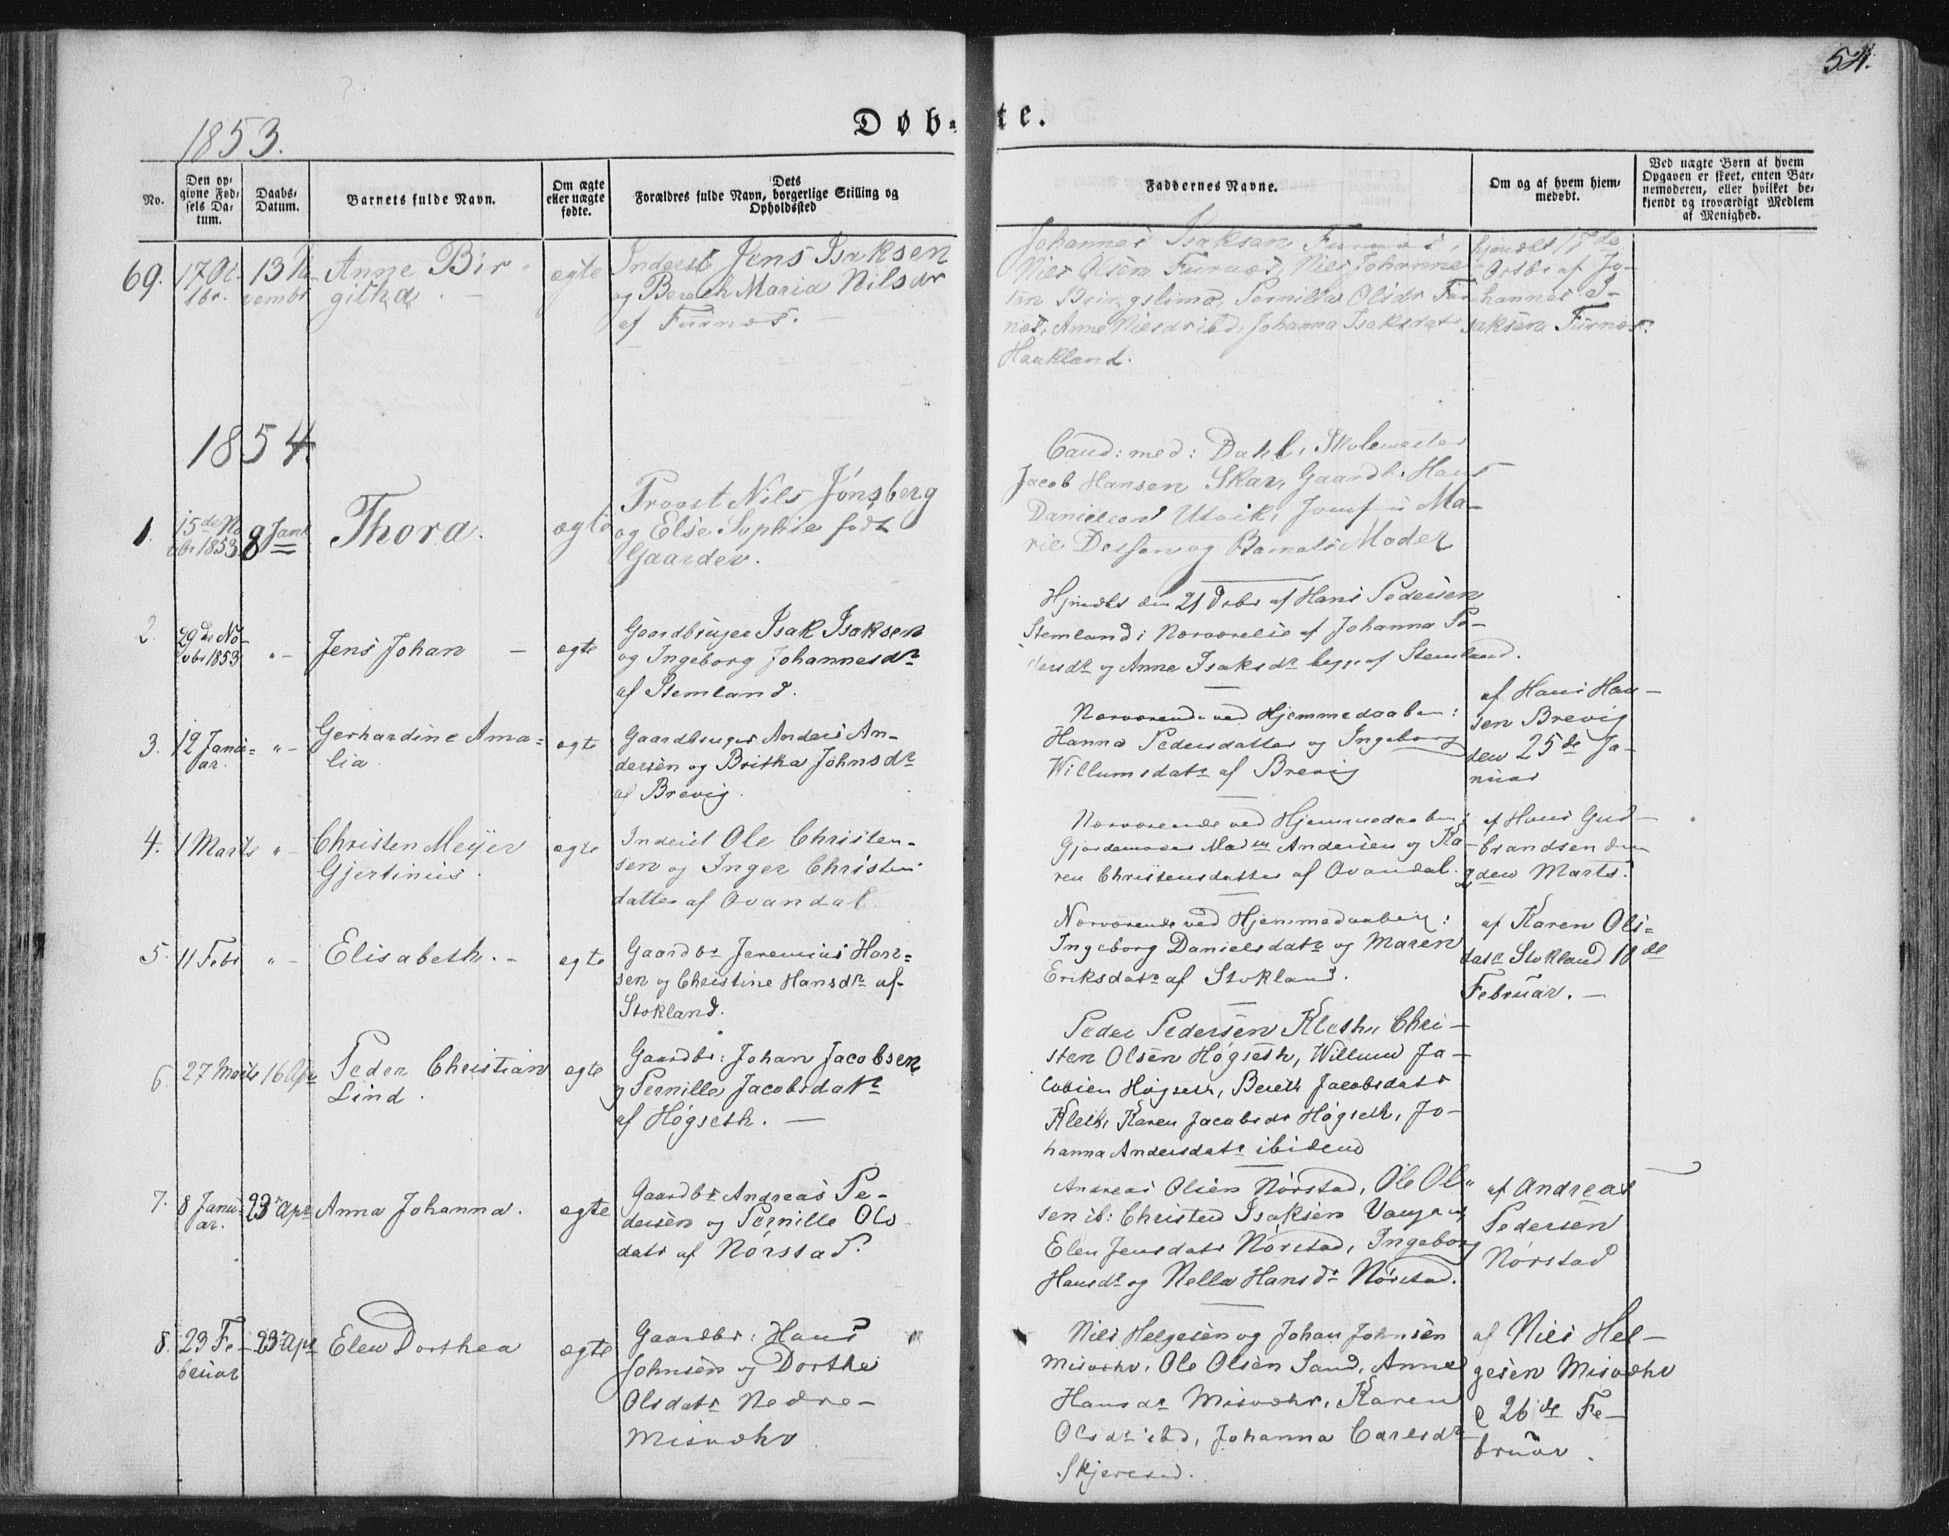 54.
1853.
Døb-te.
No.
Den op-
givne Fød-
sels Da-
tum.
Daabs-
Datum.
Barnets fulde Navn.
Om ægte
eller uægte
fødte.
Dets
Forældres fulde Navn, borgerlige Stilling og
Opholdssted
Faddernes Navne.
Om og af hvem hjem-
medøbt.
Ved uægte Børn af hvem
Opgaven er skeet, enten Bar-
nemoderen, eller hvilket be-
kjendt og troværdigt Medlem
af Menighed.
69.
17 Oc
tbr.
13 No
vembr
Anne Bir-
githa
egte
Inderst Jens Isaksen
og Bereth Maria Nilsdr
af Furnes.
Johannes Isaksen Furnes,
Niels Olsen Furnes, Niels Johanne
sen Bringslimo, Pernilla Olsdr Fur
nes, Anne Nielsdr ibd, Johanna Isaksdatr
Haukland.
hjmdbt 17de
Octbr af Jo-
hannes I-
saksen Furnes.
1854.
1.
15de No
vbr 1853
8 Janr
Thora.
egte
Provst Nils Jønsberg
og Else Sophie født
Gaarder.
Cand: med: Dahl, Skolemester
Jacob Hansen Skar, Gaardb. Hans
Danielsen Utvik, Jomf Ma-
rie og Barnets Moder
2.
29de No
vbr 1853
"-
Jens Johan -
egte
Gaardbruger Isak Isaksen
og Ingeborg Johannesdr
af Stemland.
Hjmdbt den 21 Debr af Hans Pedersen
Stemland i Nærværelse af Johanna Pe-
dersdr og Anne Isaksdr begge af Stemland.
3.
12 Janu-
ar.
"-
Gerhardine Ama-
lia.
egte
Gaardbruger Anders An-
dersen og Britha Johnsdr
af Brevig.
Nærværende ved Hjemmedaaben:
Hanna Pedersdatter og Ingeborg
Willumsdatr af Brevig
af Hans Han-
sen Brevig
den 25de Ja-
nuar
4.
1 Marts
"-
Christen Meyer
Gjertinius.
egte
Inderst Ole Christen-
sen og Inger Christens
datter af Ovandal.
Nærværende ved Hjemmedaaben:
Gjordemoder Madm Andersen og Ka-
ren Christensdatter af Ovandal.
af Hans Gud-
brandsen den
2den Marts.
5.
11 Febr
"-
Elisabeth. -
egte
Gaardbr Jeremias Han-
sen og Christine Hansdr af
Stokland.
Nærværende ved Hjemmedaaben:
Ingeborg Danielsdatr og Maren
Eriksdatr af Stokland.
af Karen Ols-
datr Stokland 18de
Februar. -
6.
27 Marts
16 Apr
Peder Christian
Lind.
egte
Gaardbr: Johan Jacobsen
og Pernilla Jacobsdatr
af Høgseth. -
Peder Pedersen Kleth, Chri-
sten Olsen Høgseth, Willum Ja-
cobsen Høgseth, Bereth Jacobsdatr
Kleth, Karen Jacobsdr Høgseth, Jo-
hanna Andersdatr ibidem
7.
8 Janu-
ar.
23 Apr
Anna Johanna.
egte
Gaardbr Andreas Pe-
dersen og Pernille Ols
datr af Nørstad.
Andreas Olsen Nørstad, Ole Ol-
sen ib: Christen Isaksen
Elen Jensdatr Nørstad, Ingeborg
Hansdr og Nella Hansdr Nørstad.
af Andreas
Pedersen
Nørstad
8.
23 Fe-
bruar
23 Apr
Elen Dorthea
egte
Gaardbr: Hans
Johnsen og Dorthe
Olsdatr Nedre-
Misvær
Niels Helgesen og Johan Johnsen
Misvær, Ole Olsen Sand, Anne
Hansdr Misvær, Karen
Olsdr ibd, Johanna Carlsdr
Skjerstad.
af Niels Hel-
gesen Misvær
d 26de Fe-
bruar.